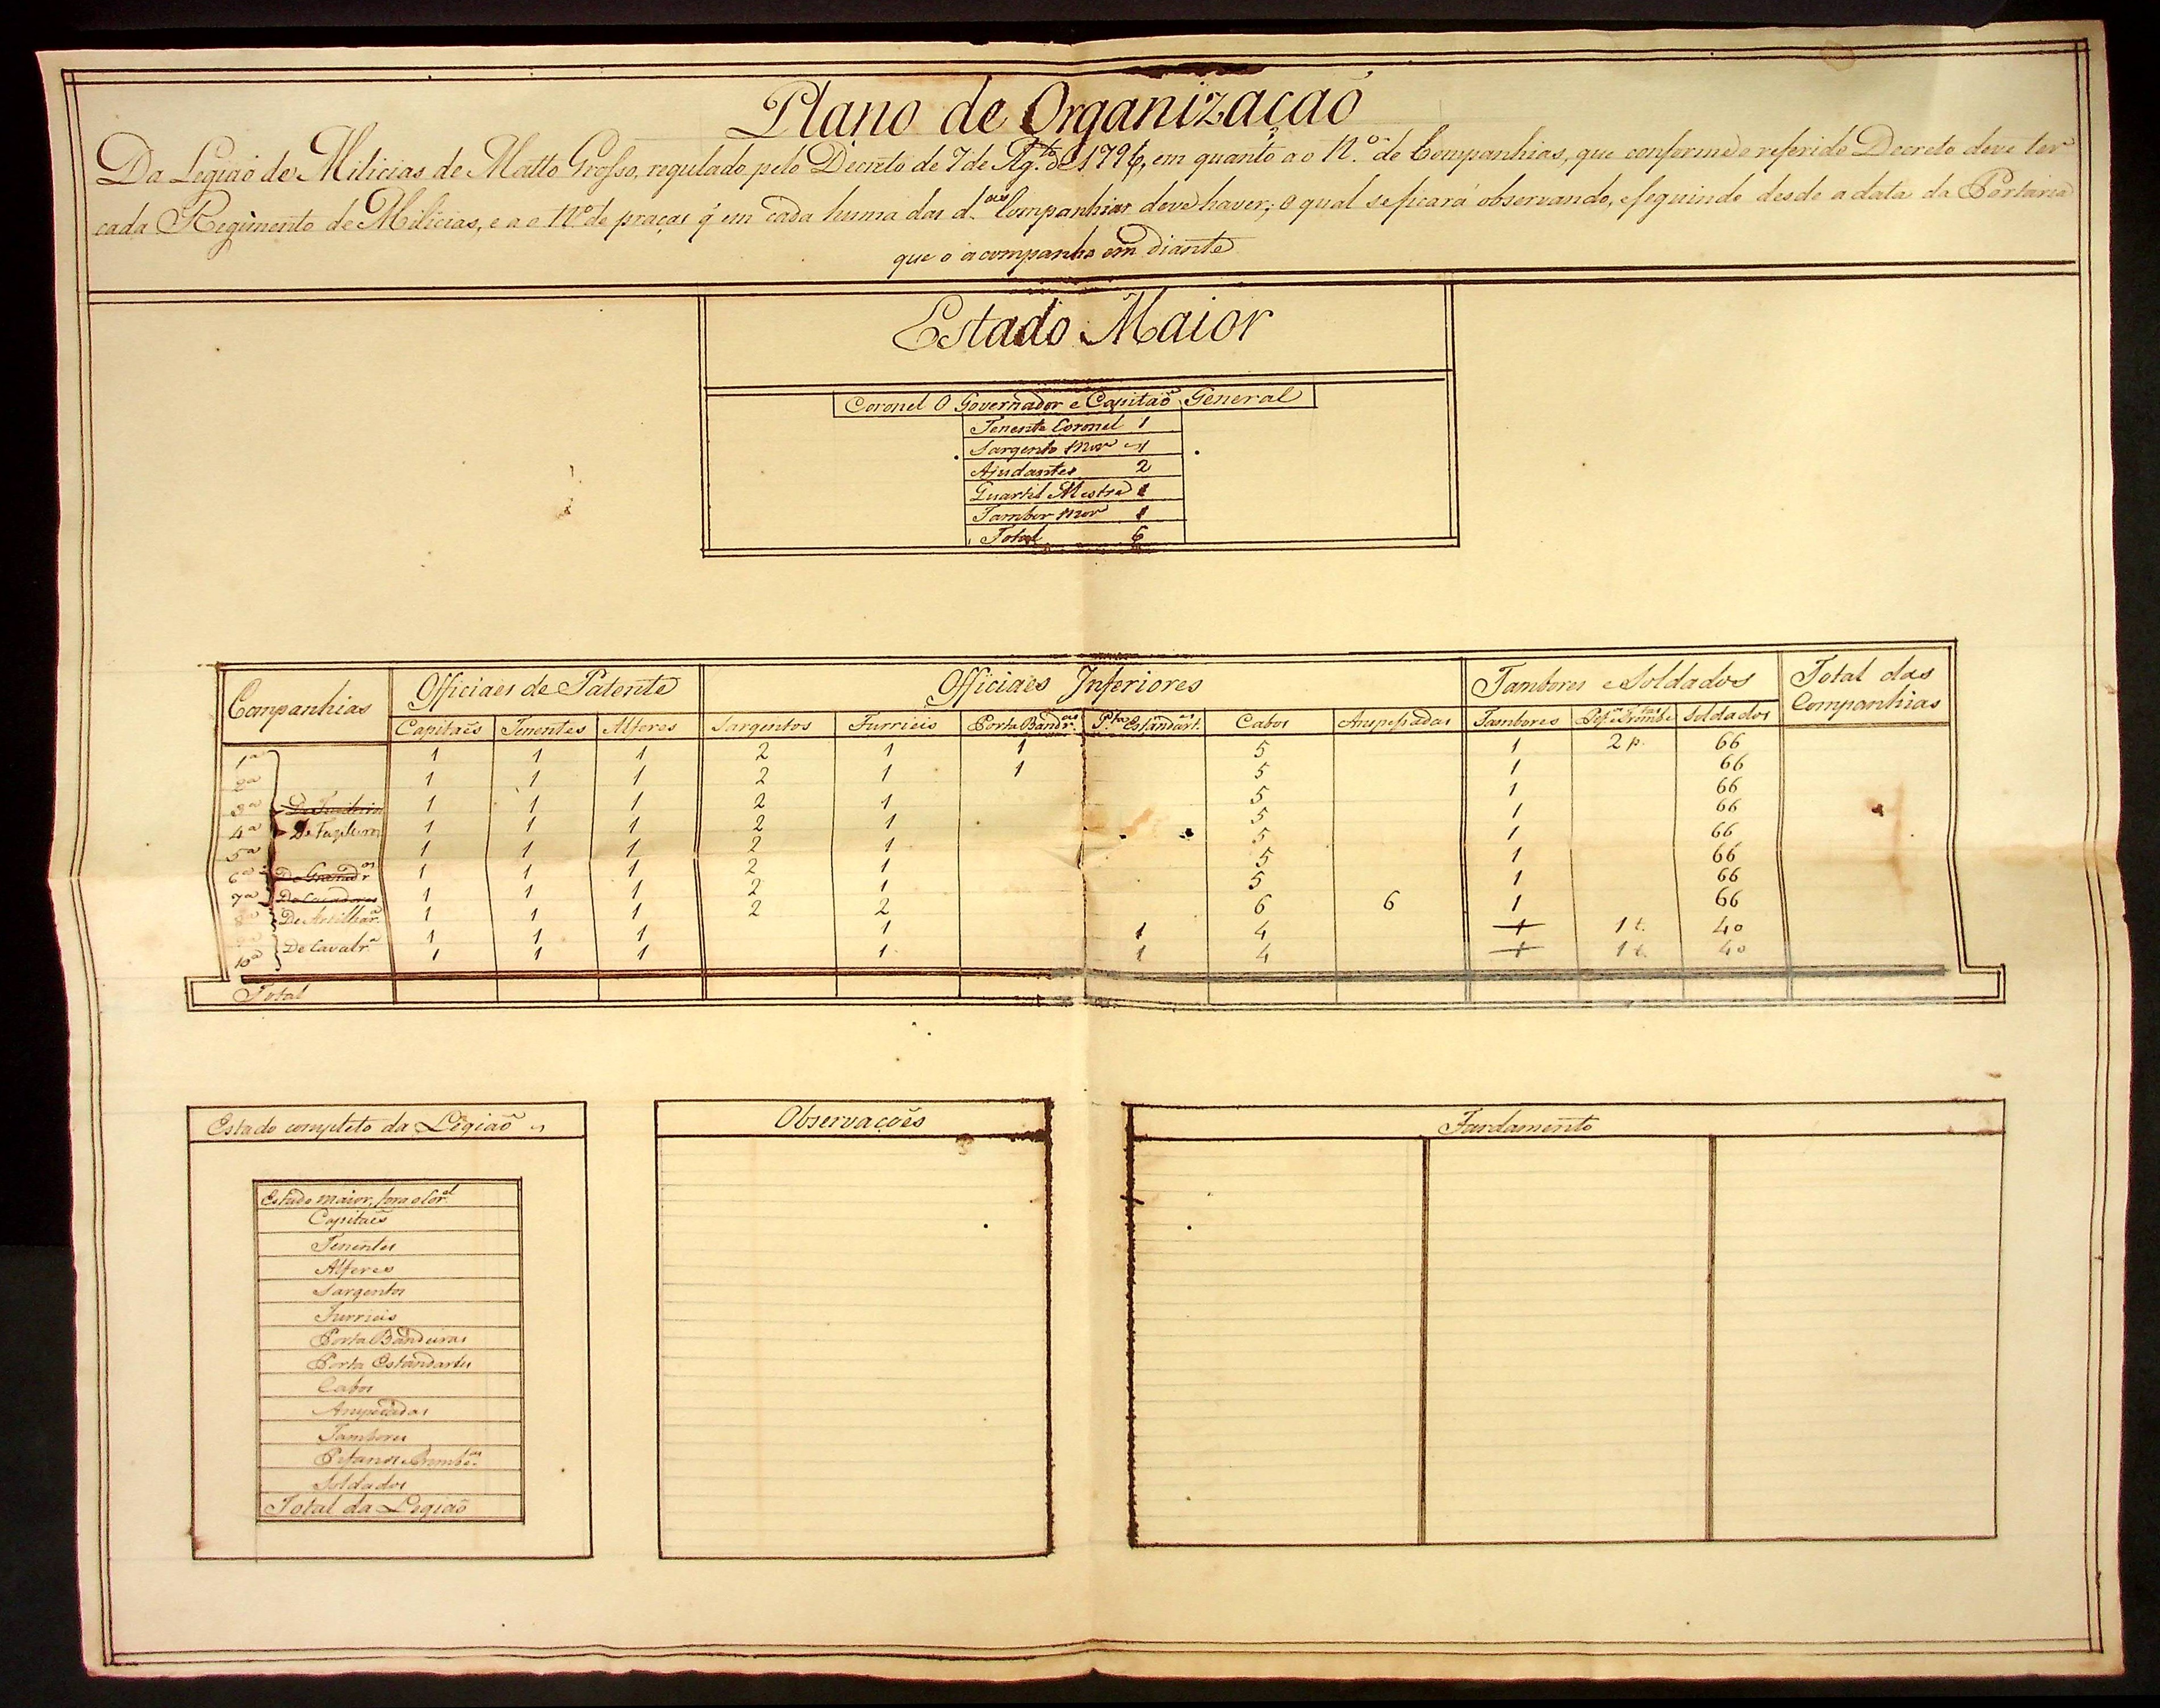 Plano de Organizacaõ
Da Legiaõ de Milicias de Matto Grosso, regulado pelo Decreto de 7 de Ag.to de 1796, em quanto ao N.º de Companhias, que conforme o referido Decreto deve ter
cada Regimento de Milicias, e ao N.º de praças q̃ em cada huma das d.as Companhias deve haver; o qual se ficará observando, e seguindo desde a data da Portaria
que o acompanha em diante
Estado Maior
Coronel O Governador e Capitaõ General
Tenente Coronel 1
Sargento Mor 1
Ajudantes 2
Quartel Mestre 1
Tambor Mor 1
Total 6
Companhias Officiaes de Patente Officiaes Inferiores Tambores e Soldados Total das Companhias
Capitaẽs Tenentes Alferes Sargentos Furrieis Porta Band.as P.ta Estandart.es Cabos Anspessadas Tambores Pif.os e Tromb.tas Soldados
1ª 1 1 1 2 1 1 5 1 2 p. 66
2ª 1 1 1 2 1 1 5 1 66
3ª De Fuzileiros 1 1 1 2 1 5 1 66
4ª De Fuzileiros 1 1 1 2 1 5 1 66
5ª 1 1 1 2 1 5 1 66
6ª De Granad.os 1 1 1 2 1 5 1 66
7ª De Caçadores 1 1 1 2 1 5 1 66
8ª De Artilhar.a 1 1 1 2 2 6 6 1 66
9ª 1 1 1 1 1 4 1 1 t. 40
10ª De Cavalr.a 1 1 1 1 1 4 1 1 t. 40
Total
Estado completo da Legiaõ
Estado maior, fora o Cor.el
Capitaẽs
Tenentes
Alferes
Sargentos
Furrieis
Porta Bandeiras
Porta Estandartes
Cabos
Anspeçadas
Tambores
Pifanos e Tromb.as
Soldados
Total da Legiaõ
Observaçoẽs
Fardamento